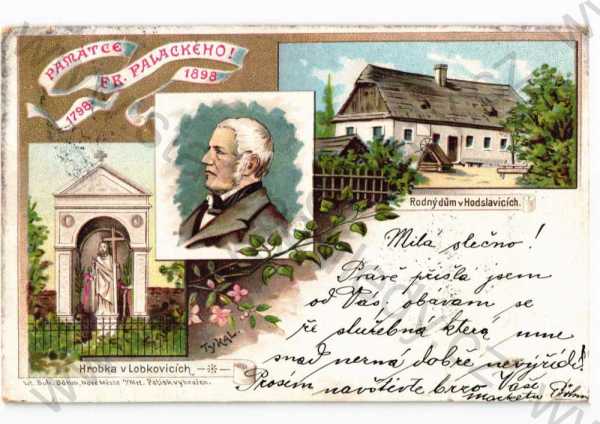 PAMÁTCE
FR. PALACKÉHO!
1798 1898
Rodný dům v Hodslavicích.
Milá slečno!
Právě přišla jsem
od Vás, obávám se
že služebná která mne
snad nezná dobře nevyřídí!
Prosím navštivte brzo Vaše
Marketu
Tykal
Hrobka v Lobkovicích
Lit. Boh. Böhm, Nové Město n/Met. Potisk vyhražen.